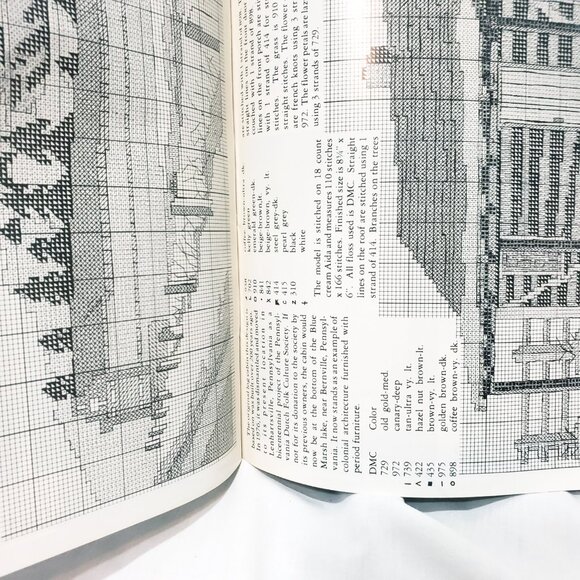 was dismantled and moved
to its present location in
Lenhartsville, Pennsylvania as a
bicentennial project of the Pennsyl-
vania Dutch Folk Culture Society. If
not for its donation to the society by
its previous owners, the cabin would
now be at the bottom of the Blue
Marsh lake, near Bernville, Pennsyl-
vania. It now stands as an example of
colonial architecture furnished with
period furniture.
DMC Color
729 old gold-med.
972 canary-deep
739 tan-ultra vy. lt.
422 hazel nut brown-lt.
435 brown-vy. lt.
975 golden brown-dk.
898 coffee brown-vy. dk.
kelly green
910 emerald green-dk.
841 beige-brown, lt.
842 beige brown, vy. lt.
414 steel grey-dk.
415 pearl grey
310 black
white
The model is stitched on 18 count
cream Aida and measures 110 stitches
x 166 stitches. Finished size is 8¼" x
6". All floss used is DMC. Straight
lines on the roof are stitched using 1
strand of 414. Branches on the trees
straight lines on the front
couched with 1 strand of 898.
lines on the front porch are
with 1 strand of 414 for
stitches. The grass is 910
straight stitches. The flower
are french knots using 3
972. The flower petals are
using 3 strands of 729.